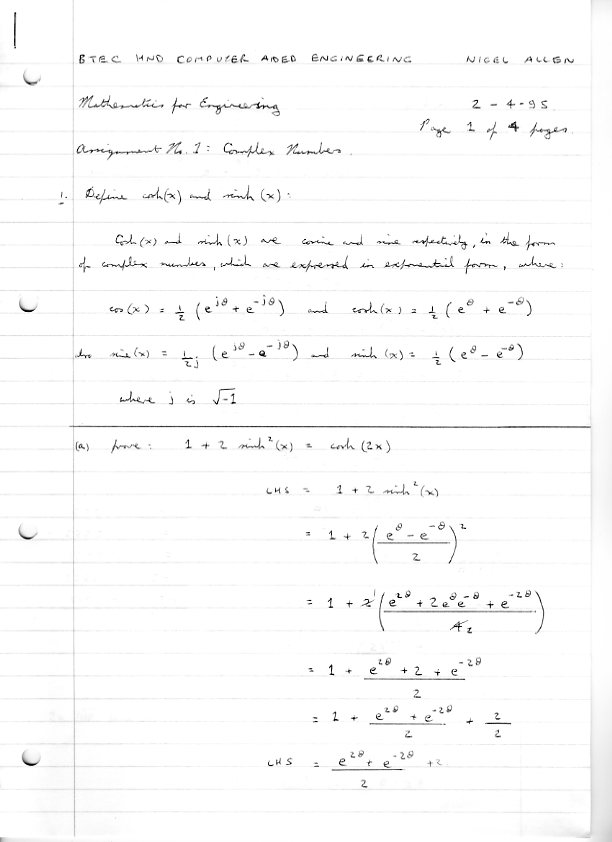 BTEC HND COMPUTER AIDED ENGINEERING NIGEL ALLEN
Mathematics for Engineering 2 - 4 - 95
Page 1 of 4 pages.
Assignment No. 1: Complex Numbers.
1. Define cosh(x) and sinh (x):
Cosh (x) and sinh (x) are cosine and sine respectively, in the form
of complex numbers, which are expressed in exponential form, where:
cos (x) = ½ (e^jθ + e^-jθ) and cosh (x) = ½ (e^θ + e^-θ)
also sine (x) = 1/2j (e^jθ - e^-jθ) and sinh (x) = ½ (e^θ - e^-θ)
where j is √-1
(a) prove: 1 + 2 sinh²(x) = cosh (2x)
LHS = 1 + 2 sinh²(x)
= 1 + 2 ((e^θ - e^-θ)/2)²
= 1 + 2 1 ((e^2θ + 2e^θe^-θ + e^-2θ)/4 2)
= 1 + (e^2θ + 2 + e^-2θ)/2
= 1 + (e^2θ + e^-2θ)/2 + 2/2
LHS = (e^2θ + e^-2θ)/2 + 2